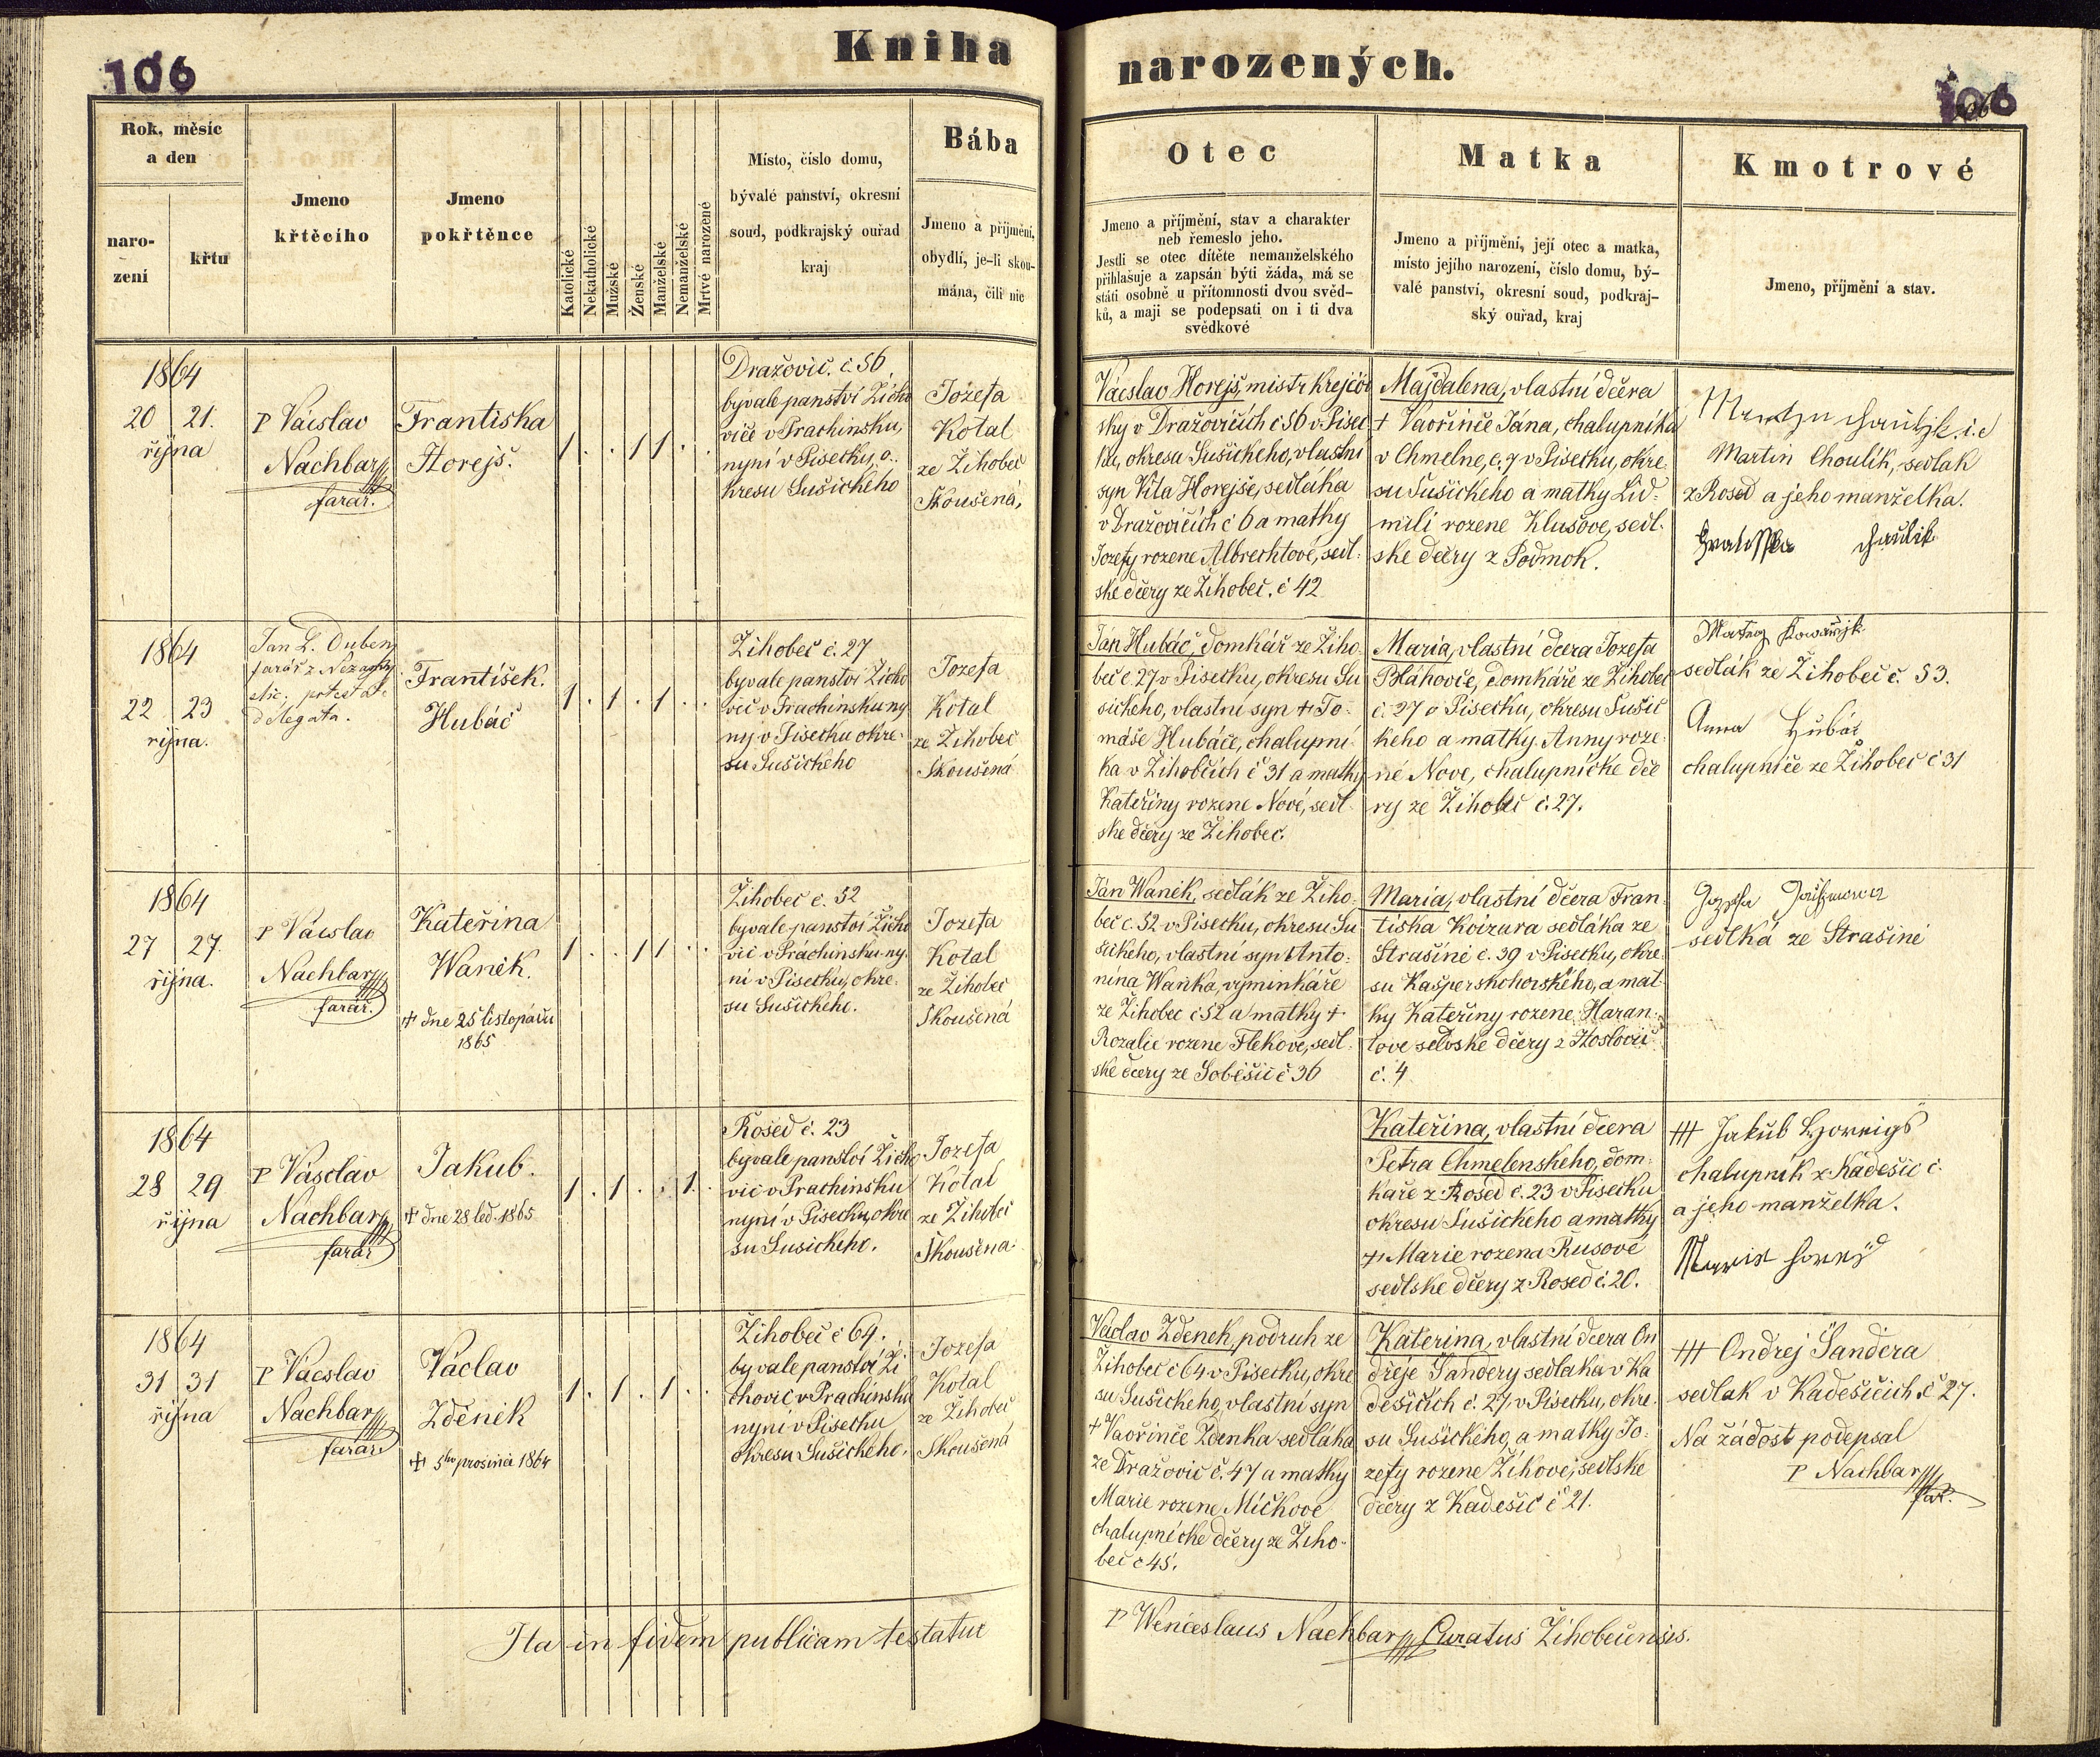 106
Kniha
narozených.
106
Rok, měsíc
a den
naro-
zení
křtu
Jmeno
křtěcího
Jmeno
pokřtěnce
Katolické
Nekatholické
Mužské
Ženské
Manželské
Nemanželské
Mrtvé narozené
Místo, číslo domu,
bývalé panství, okresní
soud, podkrajský ouřad
kraj
Bába
Jmeno a příjmění,
obydlí, je-li skou-
mána, čili nic
Otec
Jmeno a příjmění, stav a charakter
neb řemeslo jeho.
Jestli se otec dítěte nemanželského
přihlašuje a zapsán býti žáda, má se
státi osobně u přítomnosti dvou svěd-
ků, a mají se podepsati on i ti dva
svědkové
Matka
Jmeno a příjmění, její otec a matka,
místo jejího narození, číslo domu, bý-
valé panství, okresní soud, podkraj-
ský ouřad, kraj
Kmotrové
Jmeno, příjmění a stav.
1864
20 21.
října
P Václav
Nachbar
farář.
Františka
Horejš.
1 . . 1 1 . .
Dražovic. č. 56,
byvale panství Žicho
vice v Prachinsku,
nyní v Pisecku, o.
kresu Sušického
Jozefa
Kotal
ze Žihobec
Skoušená,
Václav Horejš, mistr krejčov
sky v Dražovičích č 56 v Pisec
ku, okresu Sušickeho, vlastní
syn Víta Horejše, sedláka
v Dražovičích č 6 a matky
Jozefy rozene Albrechtové, sedl.
ské dčery ze Žihobec. č 42
Majdalena, vlastní dčera
+ Vavřinče Jána, chalupníka
v Chmelne, č. 7 v Pisecku, okre.
su Sušickeho a matky Lid-
mili rozene Klusove, sedl.
ske dčery z Podmok.
i. e
Martin Choulik, sedlak
z Rosed a jeho manželka.
1864
22 23
října.
Jan L. Duben
farář z Nezamysl
delegata.
František.
Hubáč
1 . 1 . 1 . .
Žihobec č. 27
byvale panství Žicho
vic v Prachinsku ny
ny v Pisecku okre-
su Sušického
Jozefa
Kotal
ze Žihobec
Skoušená
Ján Hubáč, domkář ze Žiho.
bec č. 27 v Pisecku, okresu Su
sickeho, vlastní syn + To-
máše Hubáče, chalupní-
ka v Žihobcích č 31 a matky
Kateřiny rozene Nové, sedl.
ske dčery ze Žihobec.
Maria, vlastní dčera Jozefa
Bláhovče, domkáře ze Žihobec
č. 27 v Pisecku, okresu Sušic
keho a matky Anny roze.
né Nove, chalupnícke dče
ry ze Žihobec č. 27.
sedlák ze Žihobec č. 53.
Anna Hubáč
chalupniče ze Žihobec č 31
1864
27 27.
října.
P Václav
Nachbar
farář.
Kateřina
Waněk.
+ dne 25 listopadu
1865
1 . . 1 1 . .
Žihobec č. 52
byvale panství Žicho
vic v Práchinsku ny.
ní v Pisecku, okre.
su Sušickeho.
Jozefa
Kotal
ze Žihobec
Skoušená
Ján Waněk, sedlák ze Žiho.
bec č. 52 v Pisecku, okresu Su
šickeho, vlastní syn Anto-
nína Waňka, vyminkáře
ze Žihobec č 52 a matky +
Rozalie rozene Flekove, sedl.
ske dčery ze Soběšic č 36
Maria, vlastní dčera Fran
tiska Koizura sedláka ze
Strašíně č. 39 v Pisecku, okre.
su Kašperskohorského, a mat
ky Kateřiny rozene Haran-
tove selske dčery z Hoslovic
č. 4
sedlka ze Strašině
1864
28 29
října
P Václav
Nachbar
farář
Jakub.
+ dne 28 led. 1865
1 . 1 . . 1 .
Rosed č. 23
byvale panství Žicho
vic v Prachinsku
nyní v Pisecku, okre
su Susickeho.
Jozefa
Kotal
ze Žihobec
Skoušena
Kateřina, vlastní dčera
Petra Chmelenskeho, dom.
kaře z Rosed č. 23 v Pisecku
okresu Sušickeho a matky
+ Marie rozena Rusove
sedlske dčery z Rosed č. 20.
+++ Jakub Horeigs
chalupník z Kadešic č.
a jeho manželka.
1864
31 31
října
P Václav
Nachbar
farář
Václav
Zděněk
+ 5ho prosince 1864
1 . 1 . 1 . .
Žihobec č 64.
byvale panství Ži
chovic v Prachinsku
nyní v Pisecku
okresu Sušického.
Jozefa
Kotal
ze Žihobec
Skoušená
Vaclav Zdenek, podruh ze
Žihobec č 64 v Pisecku, okre
su Sušickeho, vlastní syn
+ Vavřinče Zdenka sedláka
ze Dražovic č. 47 a matky
Marie rozene Mičkove
chalupnicke dčery ze Žiho-
bec č 45.
Katerina, vlastní dčera On
dřeje Šandery sedlaka v Ka
děšicích č. 27 v Pisecku, okre.
su Sušického, a matky Jo-
zefy rozene Žikove, sedlske
dčery z Kadešic č 21.
+++ Ondrej Šandera
sedlak v Kadešicich č 27.
Na žádost podepsal
P Nachbar
far.
Ita in fidem publicam testatur
P Wenceslaus Nachbar Curatus Žihobecensis.